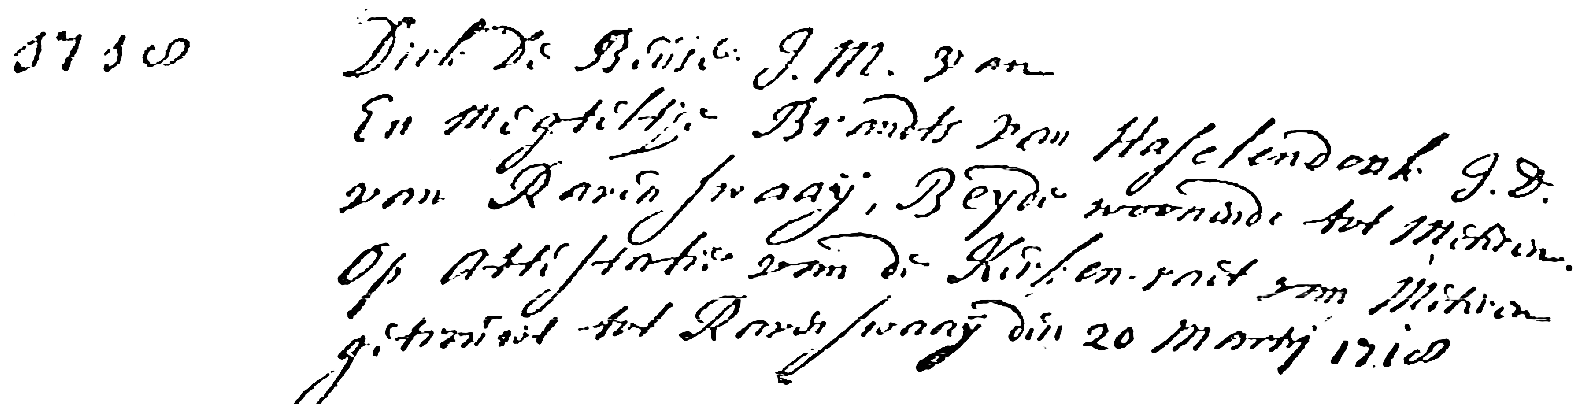 1718 Dirk de Beüse J. M. van
En Megteltje Brandts van Haselendonk J. D.
van Ravenswaaÿ, Beyde woonende tot Meteren.
Op Attestatie van de Kerken-raet van Meteren
getrouwt tot Ravenswaaÿ den 20 Martij 1718